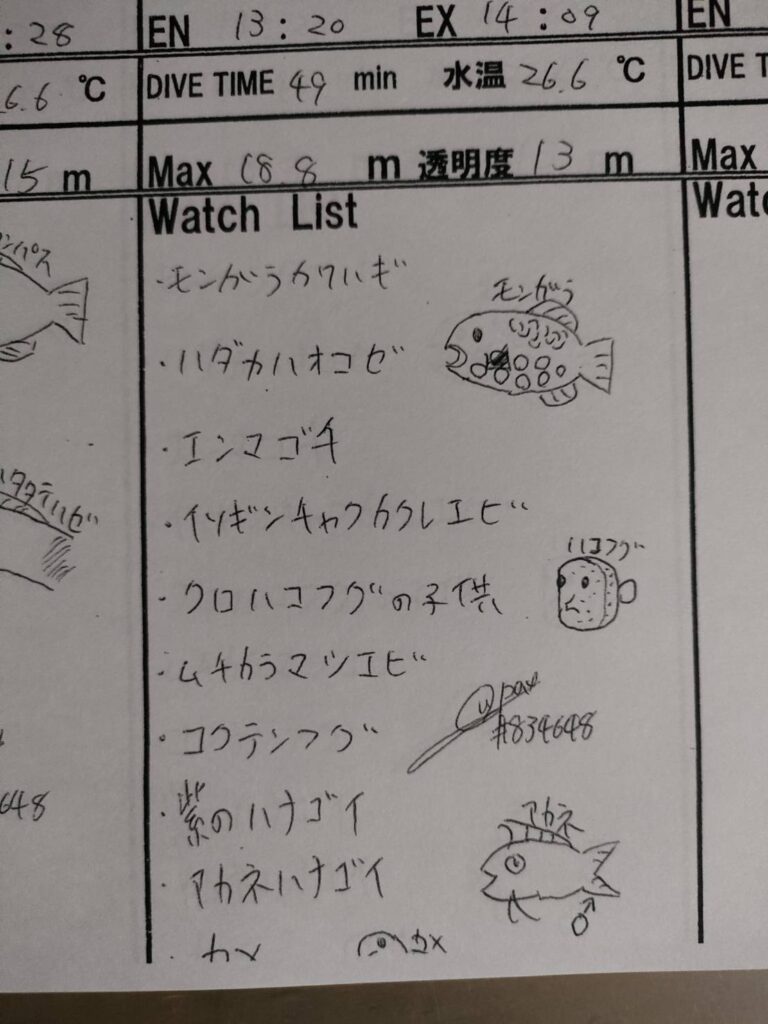 : 28
EN 13 : 20 EX 14 : 09
EN
6.6 ℃
DIVE TIME 49 min 水温 26.6 ℃
DIVE T
15 m
Max 18.8 m 透明度 13 m
Max
Watch List
Watc
ンパス
・モンガラカワハギ
モンガラ
・ハダカハオコゼ
・エンマゴチ
ハタタテハゼ
・イソギンチャクカクレエビ
ハコフグ
・クロハコフグの子供
・ムチカラマツエビ
・コクテンフグ
#834648
648
・紫のハナゴイ
アカネ
・アカネハナゴイ
♂
・カメ
カメ